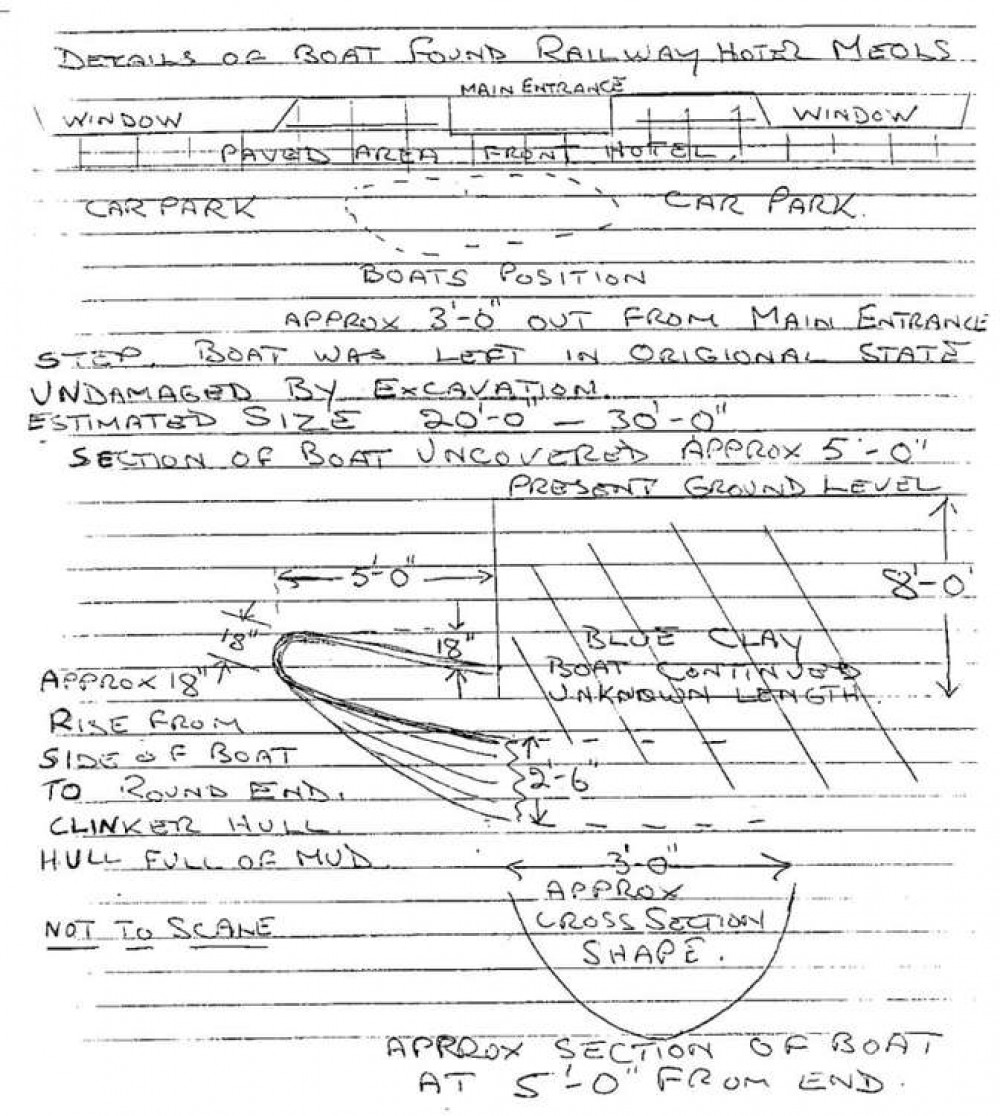 DETAILS OF BOAT FOUND RAILWAY HOTEL MEOLS
MAIN ENTRANCE
WINDOW
WINDOW
PAVED AREA FRONT HOTEL.
CAR PARK
CAR PARK.
BOATS POSITION
APPROX 3'-0" OUT FROM MAIN ENTRANCE
STEP. BOAT WAS LEFT IN ORIGIONAL STATE
UNDAMAGED BY EXCAVATION.
ESTIMATED SIZE 20'-0" - 30'-0"
SECTION OF BOAT UNCOVERED APPROX 5'-0"
PRESENT GROUND LEVEL
5'-0"
8'-0'
18"
18"
BLUE CLAY
BOAT CONTINUED
UNKNOWN LENGTH.
APPROX 18"
RISE FROM
SIDE OF BOAT
TO ROUND END.
CLINKER HULL.
HULL FULL OF MUD.
2'-6"
3'-0"
APPROX
CROSS SECTION
SHAPE.
NOT TO SCALE
APPROX SECTION OF BOAT
AT 5'-0" FROM END.